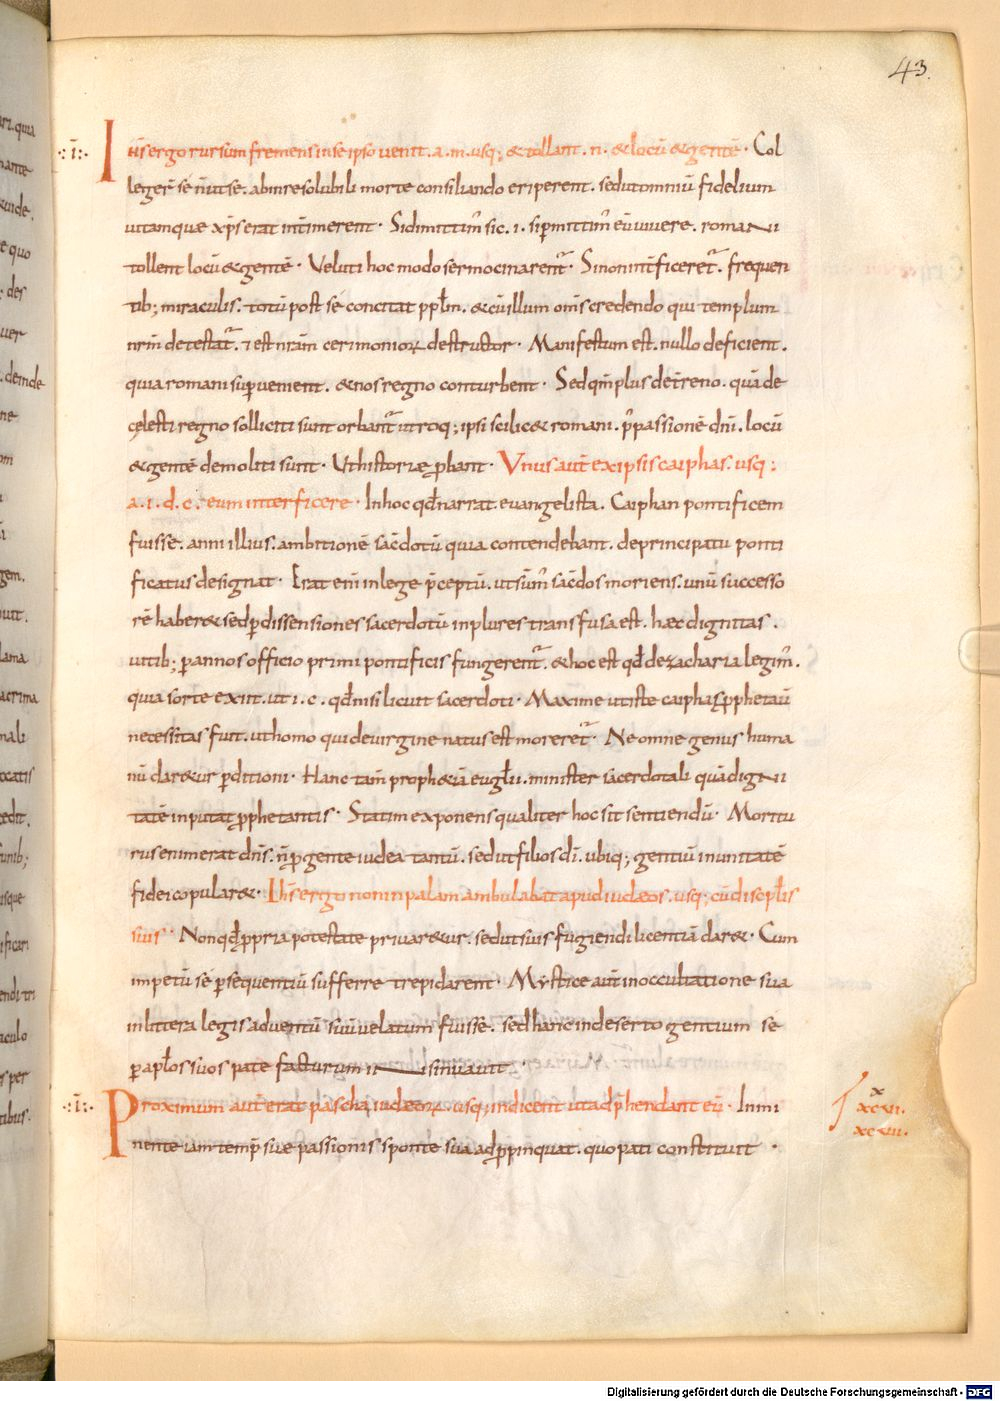 43.
·:ī:· Ih̄s ergo rursum fremens in se ipso uenit. a. m. usq; & tollant. n. & locū & gentē · Col
leger̄ se n̄ ut se. ab inresolubili morte consiliando eriperent. sed ut omniū fidelium
uitam quæ xp̄s erat intimerent · Si dimittim̄ sic. i. si p̄mittim̄ eū uiuere. romani
tollent locū & gentē · Veluti hoc modo sermocinarent᷑ · Si non int̄ficeret᷑. frequen
tib; miraculis. totū post se concitat ppl̄m. & cū illum om̄s credendo qui templum
nr̄m detestat᷑. ⁊ est nr̄am cerimonioꝝ destructor · Manifestum est. nullo deficient.
quia romani sup̄uenient. & nos regno conturbent · Sed qm̄ plus de t̄reno. quā de
cęlesti regno solliciti sunt orbant᷑ utroq; ipsi scilic& romani. p̄ passionē dn̄i. locū
& gentē demoliti sunt · Ut historiæ ꝓbant · Vnus aut̄ ex ipsis caiphas. usq;
a. i. d. c. eum interficere · In hoc qd̄ narrat euangelista. Caiphan pontificem
fuisse. anni illius. ambitionē sac̄dotū quia contendebant. de principatu ponti
ficatus designat · Erat eni in lege p̄ceptū. ut sūm̄ sac̄dos moriens. unū successo
rē haber& sed p̄ dissensiones sacerdotū in plures transfusa est. hæc dignitas.
uitib; p̄ annos officio primi pontificis fungerent᷑. & hoc est qd̄ de zacharia legim̄.
quia sorte exiit. ut i. c. qd̄ nisi licuit sacerdoti · Maxime ut iste caiphas ꝓphetaū
necessitas fuit. ut homo qui de uirgine natus est moreret᷑ · Ne omne genus huma
nū dar&ur p̄ditioni · Hanc tam̄ proph&iā eugl̄ii. minister sacerdotali quā digni
tatē inputat ꝓphetantis · Statim exponens qualiter hoc sit sentiendū · Moritu
rus enim erat dn̄s. n̄ ꝓ gente iudea tantū. sed ut filios dī. ubiq; gentiū in unitatē
fidei copular& · Ih̄s ergo non in palam ambulabat apud iudæos. usq; cū discipl̄is
suis · Non qd̄ ꝓpria potestate priuar&ur. sed ut suis fugiendi licentiā dar& · Cum
impetū se p̄sequentiū sufferre trepidarent · Mystice aut̄ in occultatione sua
in littera legis aduentū suū uelatum fuisse. sed hanc in deserto gentium se
p̄ apl̄os suos pate facturum insinuauit ·
·:ī:· Proximum aut̄ erat pascha iudæoꝝ. usq; indicent ut adp̄hendant eū · Inmi
nente iam temp̄ suæ passionis sponte sua adꝓpinquat. quo pati constituit ·
x
xcvi.
xcvii.
Digitalisierung gefördert durch die Deutsche Forschungsgemeinschaft - DFG